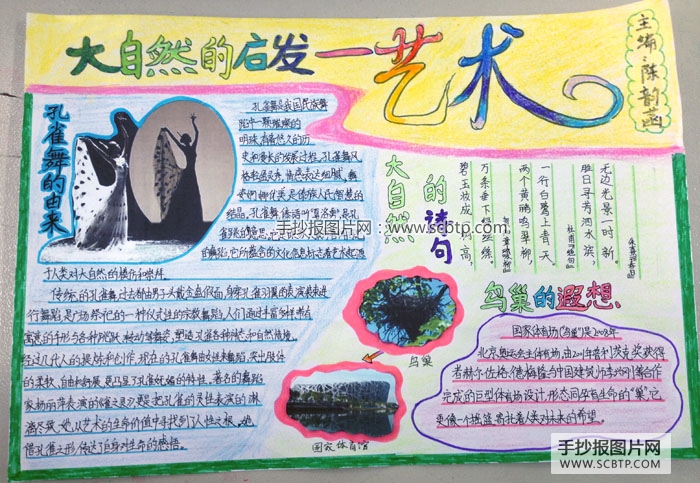 大自然的启发—艺术
主编:陈韵菡
孔雀舞的由来
孔雀舞是我国民族舞
蹈中一颗璀璨的
明珠,有着悠久的历
史和漫长的发展过程。孔雀舞风
是傣族人民智慧的
结晶。孔雀舞,傣语叫
于人类对大自然的模仿和崇拜。
传统的孔雀舞,过去都由男子头戴金盔假面,身穿孔雀羽翼的表演装束进
行舞蹈,是广场祭记的一种仪式性的宗教舞蹈。人们通过丰富多样
寓意的手形与各种跳跃、转动等舞姿,塑造孔雀各种形态和自然情境。
经过几代人的提炼和创作,现在的孔雀舞由女性来舞蹈,突出肢体
的柔软、自由和舒展,更凸显了孔雀妩媚的特性。著名的舞蹈
家杨丽萍表演的
漓尽致,她以艺术的生命价值中寻找到了人性之根,她
借孔雀之形,传达了自身对生命的感悟。
大自然的诗句
胜日寻芳泗水滨,
无边光景一时新。
朱熹《春日》
两个黄鹂鸣翠柳,
一行白鹭上青天。
杜甫《绝句》
碧玉妆成一树高,
万条垂下绿丝绦。
贺知章《咏柳》
手抄报图片网:www.scbtp.com
鸟巢的遐想
国家体育场(“鸟巢”)是2008年
北京奥运会主体育场。由2001年普利茨克奖获得
者赫尔佐格、德梅隆与中国建筑师李兴刚等合作
完成的巨型体育场设计,形态同孕育生命的“巢”,它
更像一个摇篮,寄托着人类对未来的希望。
鸟巢
国家体育馆
手抄报图片网
WWW.SCBTP.COM